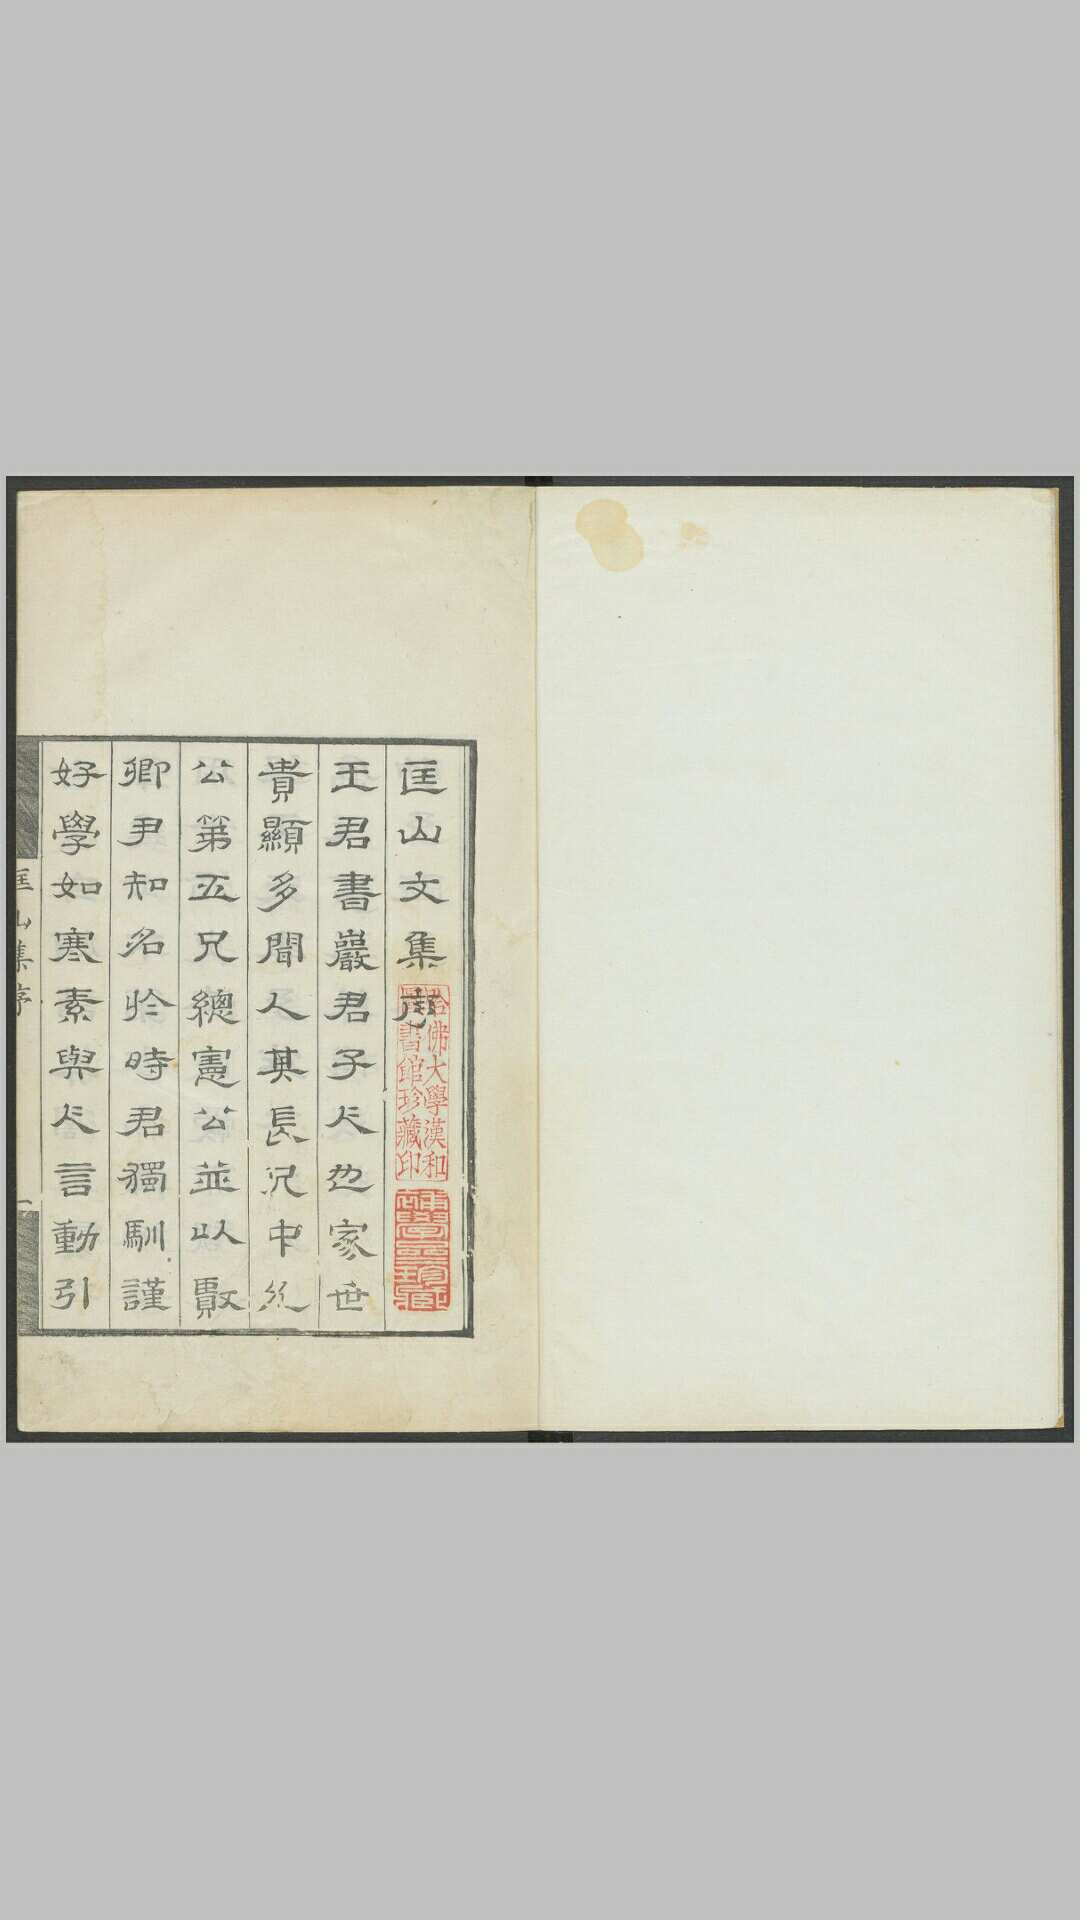 匡山文集序
王君書巖君子人也家世
貴顯多聞人其長兄中丞
公第五兄總憲公並以敭
卿尹知名於時君獨馴謹
好學如寒素與人言動引
匡山集序
一
哈佛大學漢和
圖書館珍藏印